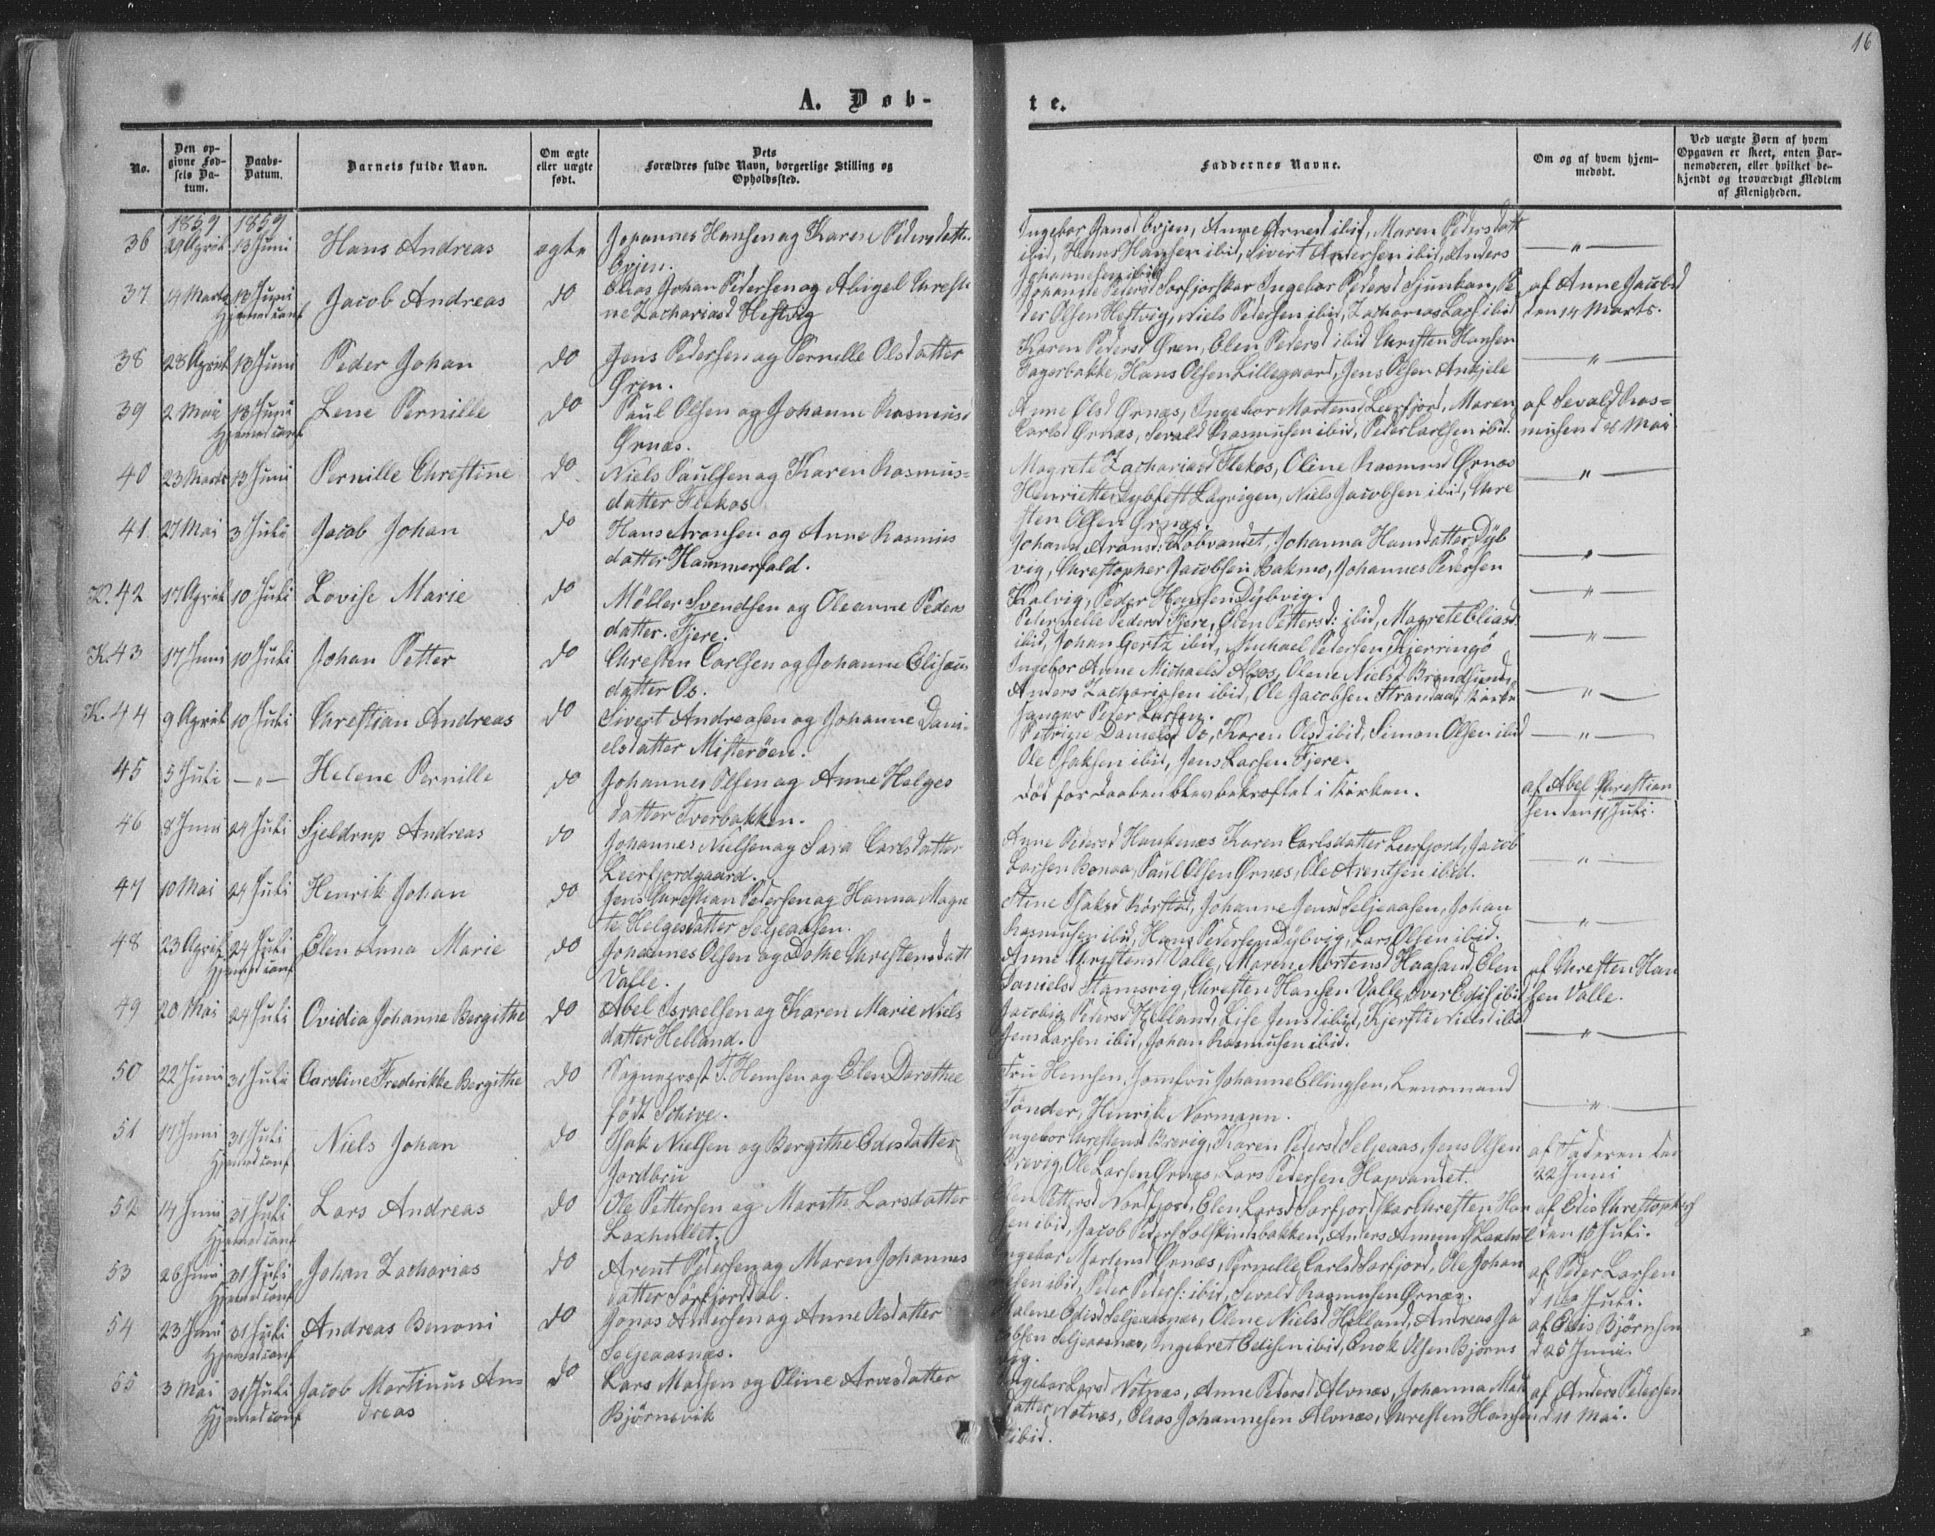 16
A. Døb-
te.
No.
Den op-
givne Fød-
sels Da-
tum.
Daabs-
Datum.
Barnets fulde Navn.
Om ægte
eller uægte
født.
Dets
Forældres fulde Navn, borgerlige Stilling og
Opholdssted.
Faddernes Navne.
Om og af hvem hjem-
medøbt.
Ved uægte Børn af hvem
Opgaven er skeet, enten Bar-
nemoderen, eller hvilket be-
kjendt og troværdigt Medlem
af Menigheden.
1859 1859
36 29 April 13 Juni Hans Andreas ægte Johannes Hansen og Karen Pedersdatter
Evjen.
Ingebor Hansd Evjen, Anne Arnesd ibid, Maren Pedersdatt
ibid, Hans Hansen ibid, Sivert Andersen ibid, Anders
Johannesen ibid
37 14 Marts 13 Juni Jacob Andreas do Elias Johan Pedersen og Abigel Christi
Hjemmed conf
ne Zachariasd Hestvig
Johanne Pedersd Sørfjorskar, Ingebor Pedersd Sjunkan, Pe
der Olsen Hestvig, Niels Pedersen ibid, Zacharias Lars ibid
af Anne Jacobsd
den 14 Marts.
38 28 April 13 Juni Peder Johan do Jens Pedersen og Pernille Olsdatter
Øren.
Karen Pedersd Øren, Elen Pedersd ibid Christen Hansen
Fagerbakke, Hans Olsen Lillegaard, Jens Olsen Ankjele
39 2 Mai 13 Juni Lene Pernille do Paul Olsen og Johanne Rasmusd
Hjemmed conf
Ørnæs.
Anne Olsd Ørnæs, Ingebor Mortensd Leerfjord, Maren
Carlsd Ørnæs, Sevald Rasmusen ibid, Peder Carlsen ibid.
af Sevald Ras-
musen d 26 Mai
40 23 Marts 13 Juni Pernille Christine do Niels Paulsen og Karen Rasmus-
datter Flekos
Magrete Zachariasd Flekos, Oline Rasmusd Ørnæs
Henriette Dybfest Løgvigen, Niels Jacobsen ibid, Chri
sten Olsen Ørnæs.
41 27 Mai 3 Juli Jacob Johan do Hans Aronsen og Anne Rasmus
datter Hammerfald.
Johanna Aronsd: Kobvandet, Johanna Hansdatter Dyb
vig, Christopher Jacobsen Bakmo, Johannes Pedersen
Kalvig, Peder Hansen Dybvig.
K. 42 17 April 10 Juli Lovise Marie do Møller Svendsen og Oleanne Peders
datter. Fjere.
Peternelle Pedersd Fjere, Elen Pettersd: ibid, Magrete Eliasd
ibid, Johan Gertz ibid, Michael Pedersen, Kjerringø
K. 43 17 Juni 10 Juli Johan Petter do Christen Carlsen og Johanne Elisæus
datter Os.
Ingebor Anne Michaelsd Alsos, Olene Nielsd Brændsund
Anders Zachariasen ibid, Ole Jacobsen Strandaa, Kirke
sanger Peter Larsen.
K. 44 9 April 10 Juli Christian Andreas do Sivert Andreasen og Johanne Dani-
elsdatter Misterøen.
Petrine Danielsd Os, Karen Olsd ibid, Simon Olsen ibid
Ole Isaksen ibid, Jens Larsen Fjere.
45 5 Juli Helene Pernille do Johannes Olsen og Anne Helges
datter Tverbakken.
død før daaben blev bekræftet i Kirken.
af Abel Christian
sen den 11 Juli.
46 8 Juni 24 Juli Sjeldrup Andreas do Johannes Nielsen og Sara Carlsdatter
Leerfjordgaard.
Anne Pedersd Haukenæs Karen Carlsdatter Leerfjord, Jacob
Larsen Bonaa, Paul Olsen Ørnæs, Ole Arentsen ibid.
47 10 Mai 24 Juli Henrik Johan do Jens Christian Pedersen og Hanna Magre
te Helgesdatter Seljeaasen.
Stine Isaksd Rørstad, Johanne Jensd Seljeaasen, Johan
Rasmusen ibid, Hans Pedersen Dybvig, Lars Olsen ibid.
48 23 April 24 Juli Elen Anna Marie do Johannes Olsen og Dothe Christensdatt
Hjemmed conf
Valle.
Anne Christensd Valle, Maren Mortensd Haasand, Elen
Danielsd Stamsvig, Christen Hansen Valle, Iver Edis ibid
af Christen Han
sen Valle.
49 20 Mai 24 Juli Ovidia Johanne Bergithe do Abel Israelsen og Karen Marie Niels
datter Helland.
Jacobia Pedersd Helland, Lise Jensd ibid, Kjersti Nielsd ibid
Jens Larsen ibid, Johan Rasmusen ibid.
50 22 Juni 31 Juli Caroline Frederikke Bergithe do Sognepræst T. Hemsen og Elen Dorothee
født Schive.
Fru Hemsen, Jomfru Johanne Ellingsen, Lensmand
Tønder, Henrik Normann.
51 17 Juni 31 Juli Niels Johan do Isak Nielsen og Bergithe Edisdatter
Hjemmed conf
Jordbru
Ingebor Christensd Brevig, Karen Pedersd Seljeaas, Jens Olsen
Brevig, Ole Larsen Ørnæs, Lars Pedersen Hopvandet.
af Faderen den
22 Juni
52 14 Juni 31 Juli Lars Andreas do Ole Pettersen og Marith Larsdatter
Hjemmed conf
Laxhullet.
Elen Pettersd Nordfjord, Elen Larsd Sørfjordskar Christen Han
sen ibid, Jacob Peders Solskinsbakken, Anders Amunds Laxhul
af Edis Christophers
den 10 Juli.
53 26 Juni 31 Juli Johan Zacharias do Arent Pedersen og Maren Johannes
Hjemmed conf
datter Sørfjorddal.
Ingebor Martensd Ørnæs, Pernelle Carlsd Sørfjord, Ole Johan
nesen ibid, Peder Peders: ibid, Sevald Rasmusen Ørnæs.
af Peder Larsen
d 10 Juli.
54 23 Juni 31 Juli Andreas Benoni do Jonas Andersen og Anne Olsdatter
Hjemmed conf
Seljeaasnæs.
Malene Edisd Seljeaasnæs, Olene Nielsd Helland, Andreas Ja
cobsen Seljeaasnæs, Ingebret Edisen ibid, Enok Olsen Bjørns
vig.
af Edis Bjørnsen
d 25 Juni.
55 3 Mai 31 Juli Jacob Martinus An- do Lars Madsen og Oline Arvesdatter
Hjemmed conf
dreas
Bjørnevik
Ingebor Larsd Notnæs, Anne Pedersd Alvnæs, Johanna Mads
datter Notnæs, Elias Johannesen Alvnæs, Christen Hansen
ibid.
af Anders Pedersen
d 11 Mai.